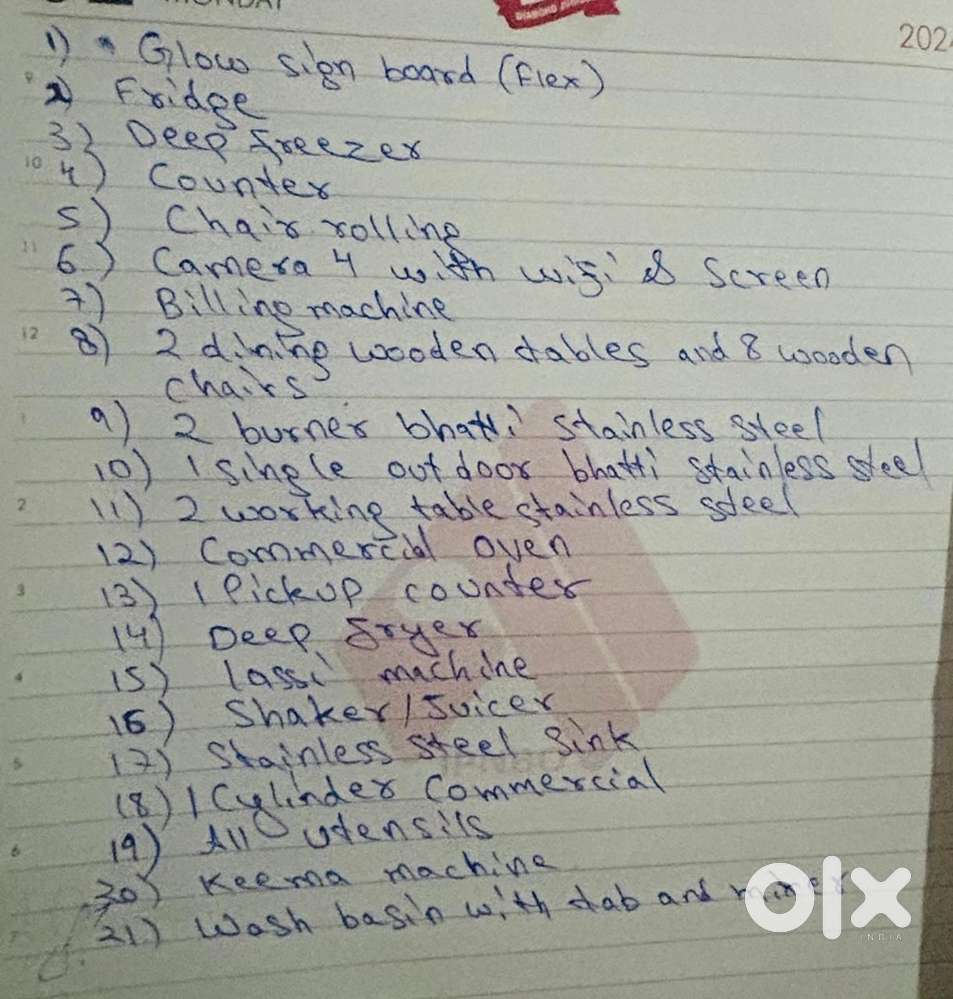 MONDAY
DIAMOND
2024
1) Glow sign board (flex)
2) Fridge
3) Deep freezer
10
4) Counter
5) Chair rolling
11
6) Camera 4 with wifi & Screen
7) Billing machine
12
8) 2 dining wooden tables and 8 wooden
chairs
1
9) 2 burner bhatti stainless steel
10) 1 single outdoor bhatti stainless steel
2
11) 2 working table stainless steel
12) Commercial oven
3
13) 1 Pickup counter
14) Deep fryer
4
15) lassi machine
16) Shaker/Juicer
5
17) Stainless steel Sink
18) 1 Cylinder Commercial
6
19) All utensils
20) Keema machine
21) Wash basin with tab and
olx
INDIA